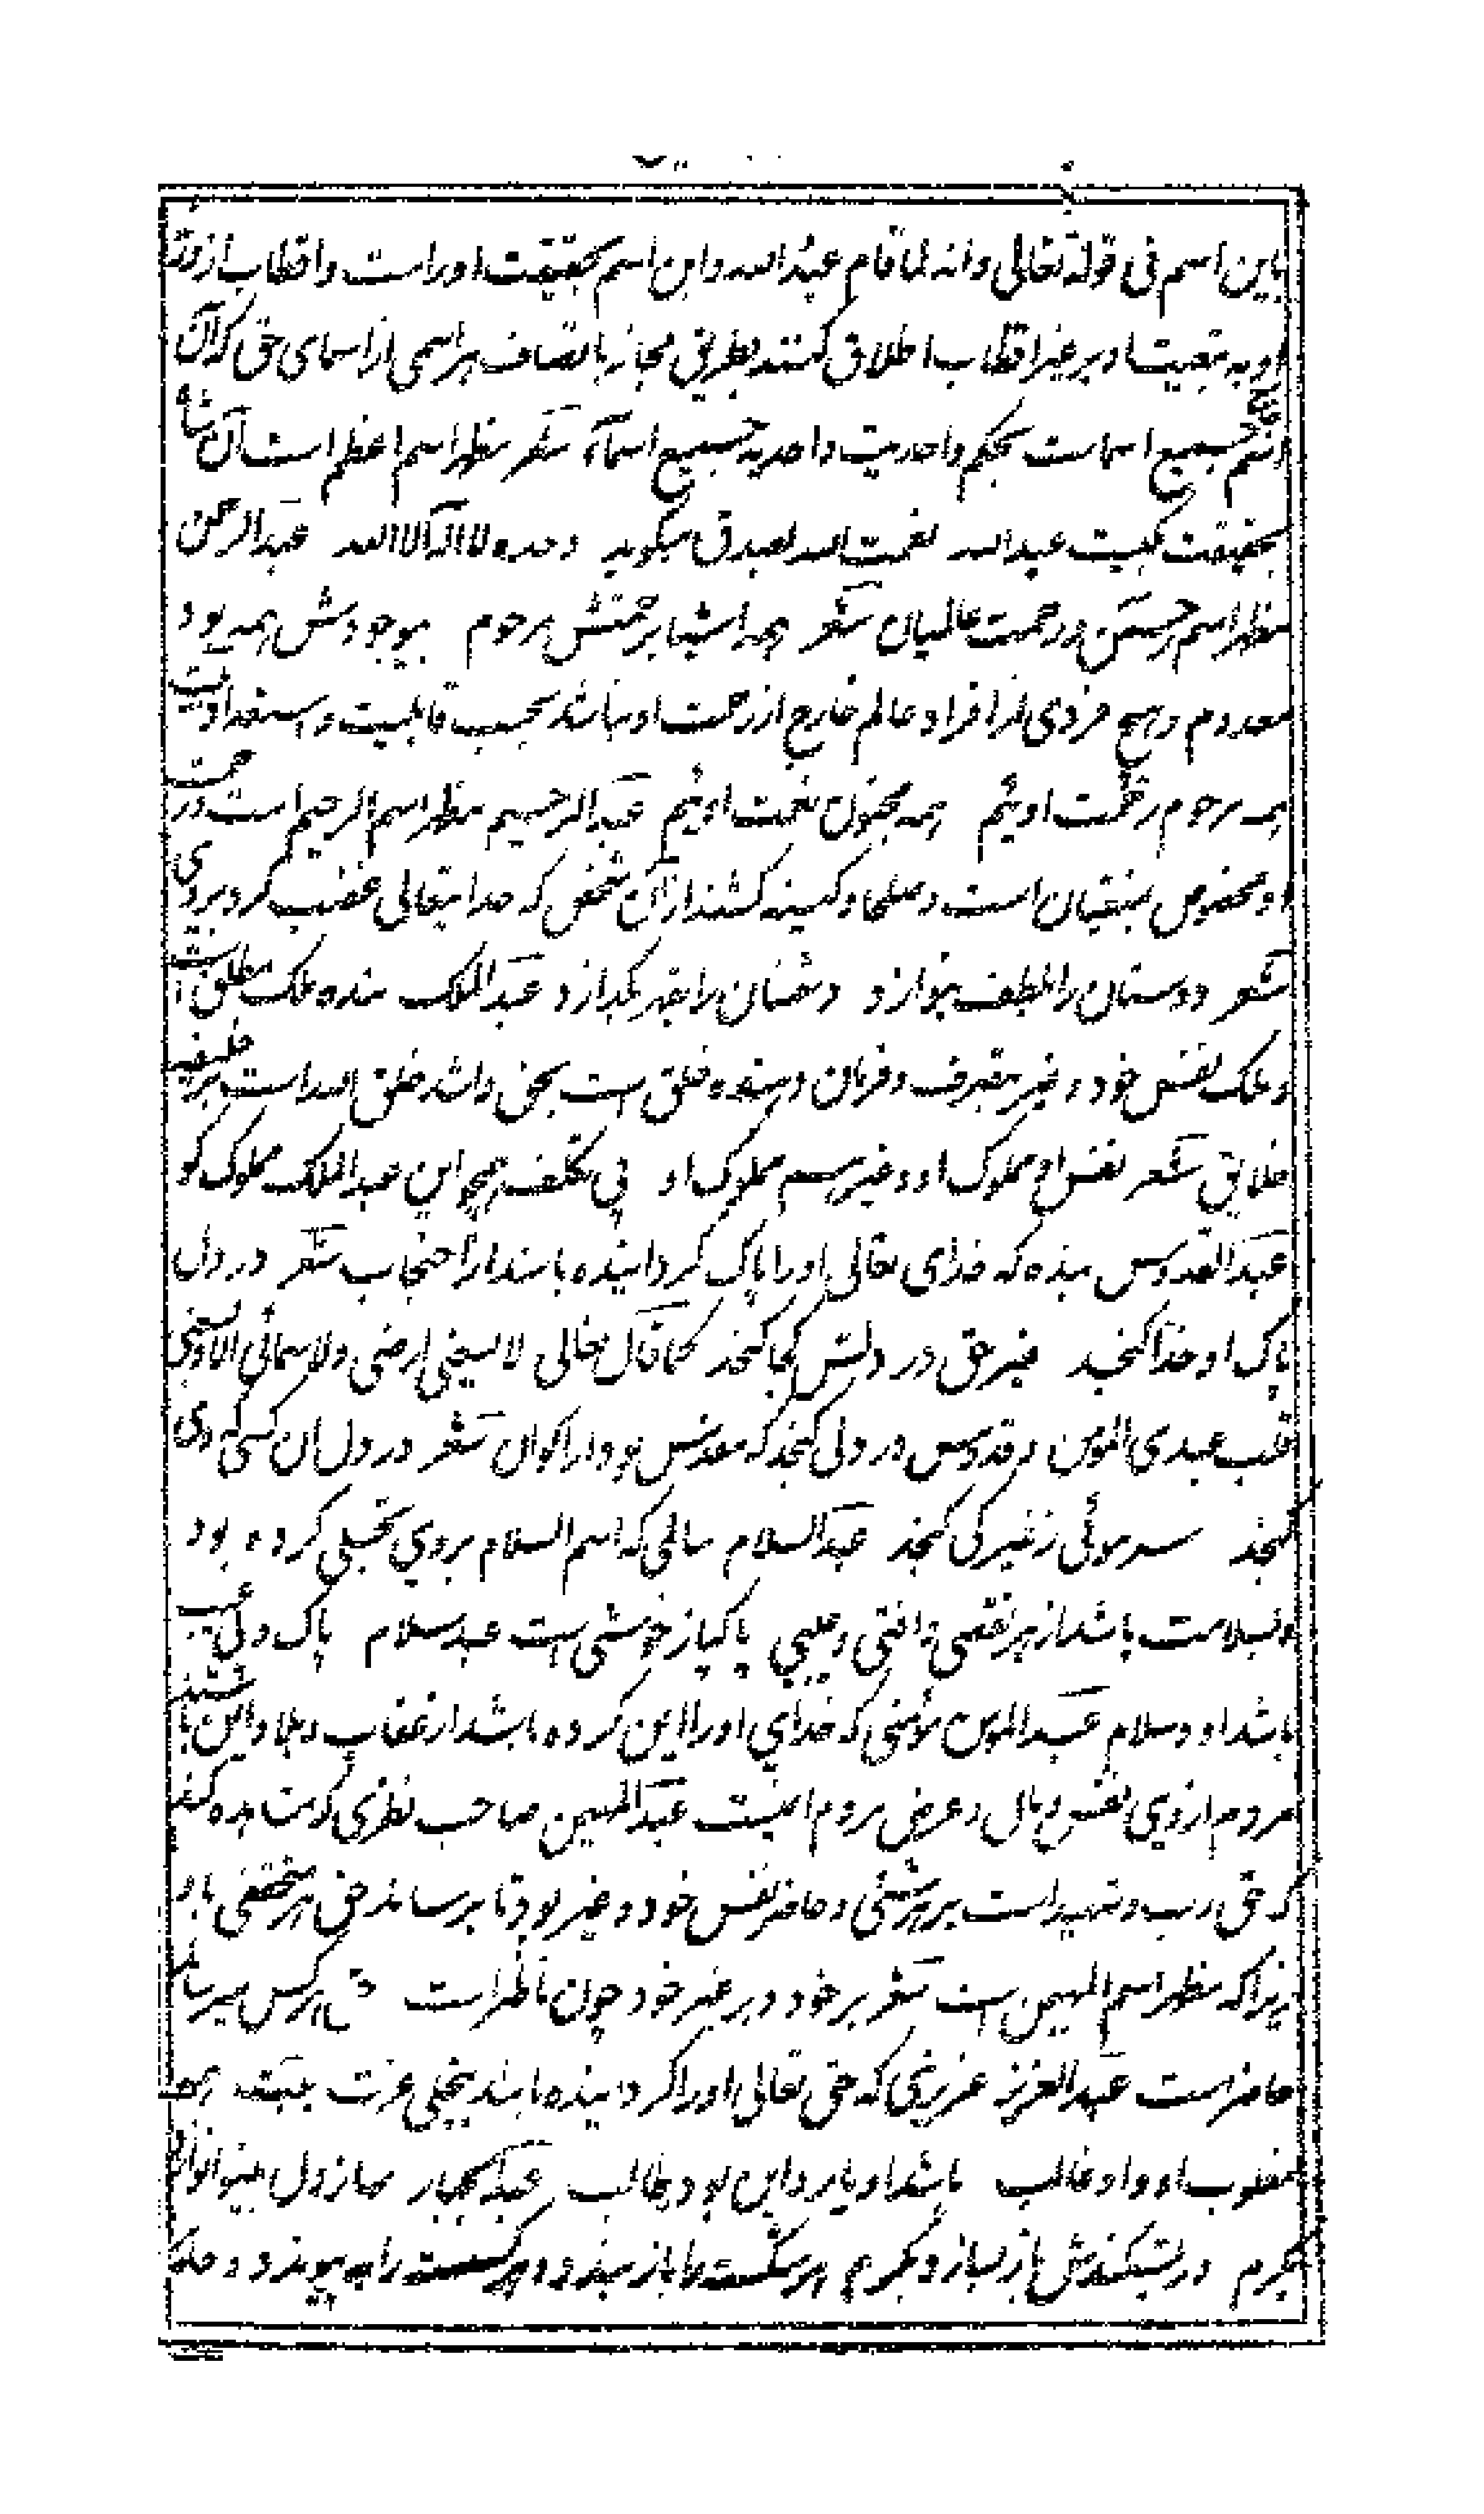 باین اسم فی قوله تعالی وانه لما قام عبد الله واین اسم بحقیقت اوراست واقطاب از ورثه
او به تبعیت او بر غیر اقطاب اطلاق کنند بطریق مجاز باتصاف هر اسمی از اسمای حق که آن
جمیع اسماست بحکم واحدیت واحدیه جمیع اسماء شعر مظهر اسم اعظم است آن شاه
بحقیقت یکیست عبد الله نعمت الله بصدق میگوید وحده لا اله الا الله عبد الرحمن
مظهر اسم رحمن ورحمت عالمیان شعر همه اشیا برحمتش مرحوم بوجودش همه بود
معدوم وهیچ فردی از افراد عالم خارج از رحمت او نباشد بحسب قابلیت واستعداد بیت
همه مرحوم رحمت اوئیم همه نعمت اوئیم عبد الرحیم مظهر اسم الرحیم است ورحمت
او مخصوص بمتقیان است وصلحا وکینه کشند از آن شخص که خدایتعالی غضب کرد بروی
شعر دوستان را بلطف بنوازد دشمنان را بقهر بگدازد عبد الملک بنده ملک مطلق است
وملک نفس خود وغیر متصرف وفرمان دهنده خلق است بحق واشد خلق الله است بر خلیفه
خلایق شعر نفس او مملوک او وغیر هم مملوک او بی تکلف همچو این عبد الملک مملوک کو
عبد القدوس بنده که خدای تعالی اورا پاک گردانیده باشد از احتجاب شعر در دل
پاک او خدا گنجد غیر حق در دلش کجا گنجد کما قال تعالی لا یسعنی ارضی ولا سمائی الا وسعنی
قلب عبدی المومن وقدوس در دلی گنجد که مقدس بود از اکوان شعر در دل آن کسی که وی
گنجد سر موئی ز غیر کی گنجد عبد السلام سالمی که اسم السلام بروی تجلی کرده بود
وبسلامت باشد از هر نقصی وآفتی وعیبی پاکباز خوشی است عبد سلام پاک دل عیب
باشد او وسلام عبد المومن مؤمنی که خدای اورا امین کرده باشد از عقاب وبلا وامین باشند
مردم از وی نفس ومال وعرض مردم عبد المهیمن صاحب نظری که مشاهده کند
که حق رب وشهید است بر هر شئی وحاضر نفس خود وغیر بود تا برساند حق هر مستحقی باو
زیرا که مظهر اسم المهیمن است شعر بر خود وبر غیر خود چون ناظر است حق هر کس میرساند
حاضر است عبد العزیز عزیزی که حق تعالی اورا گردانیده باشد بتجلی عزت بیت همه
مغلوب او واو غالب باشد او یار واین بود طالب عبد الجبار ساز دل بینوا نوازد
بکرم ور بشکندش باز بسازد بکرم هر شکسته را باز بندد وهر گسسته را به پیوندد